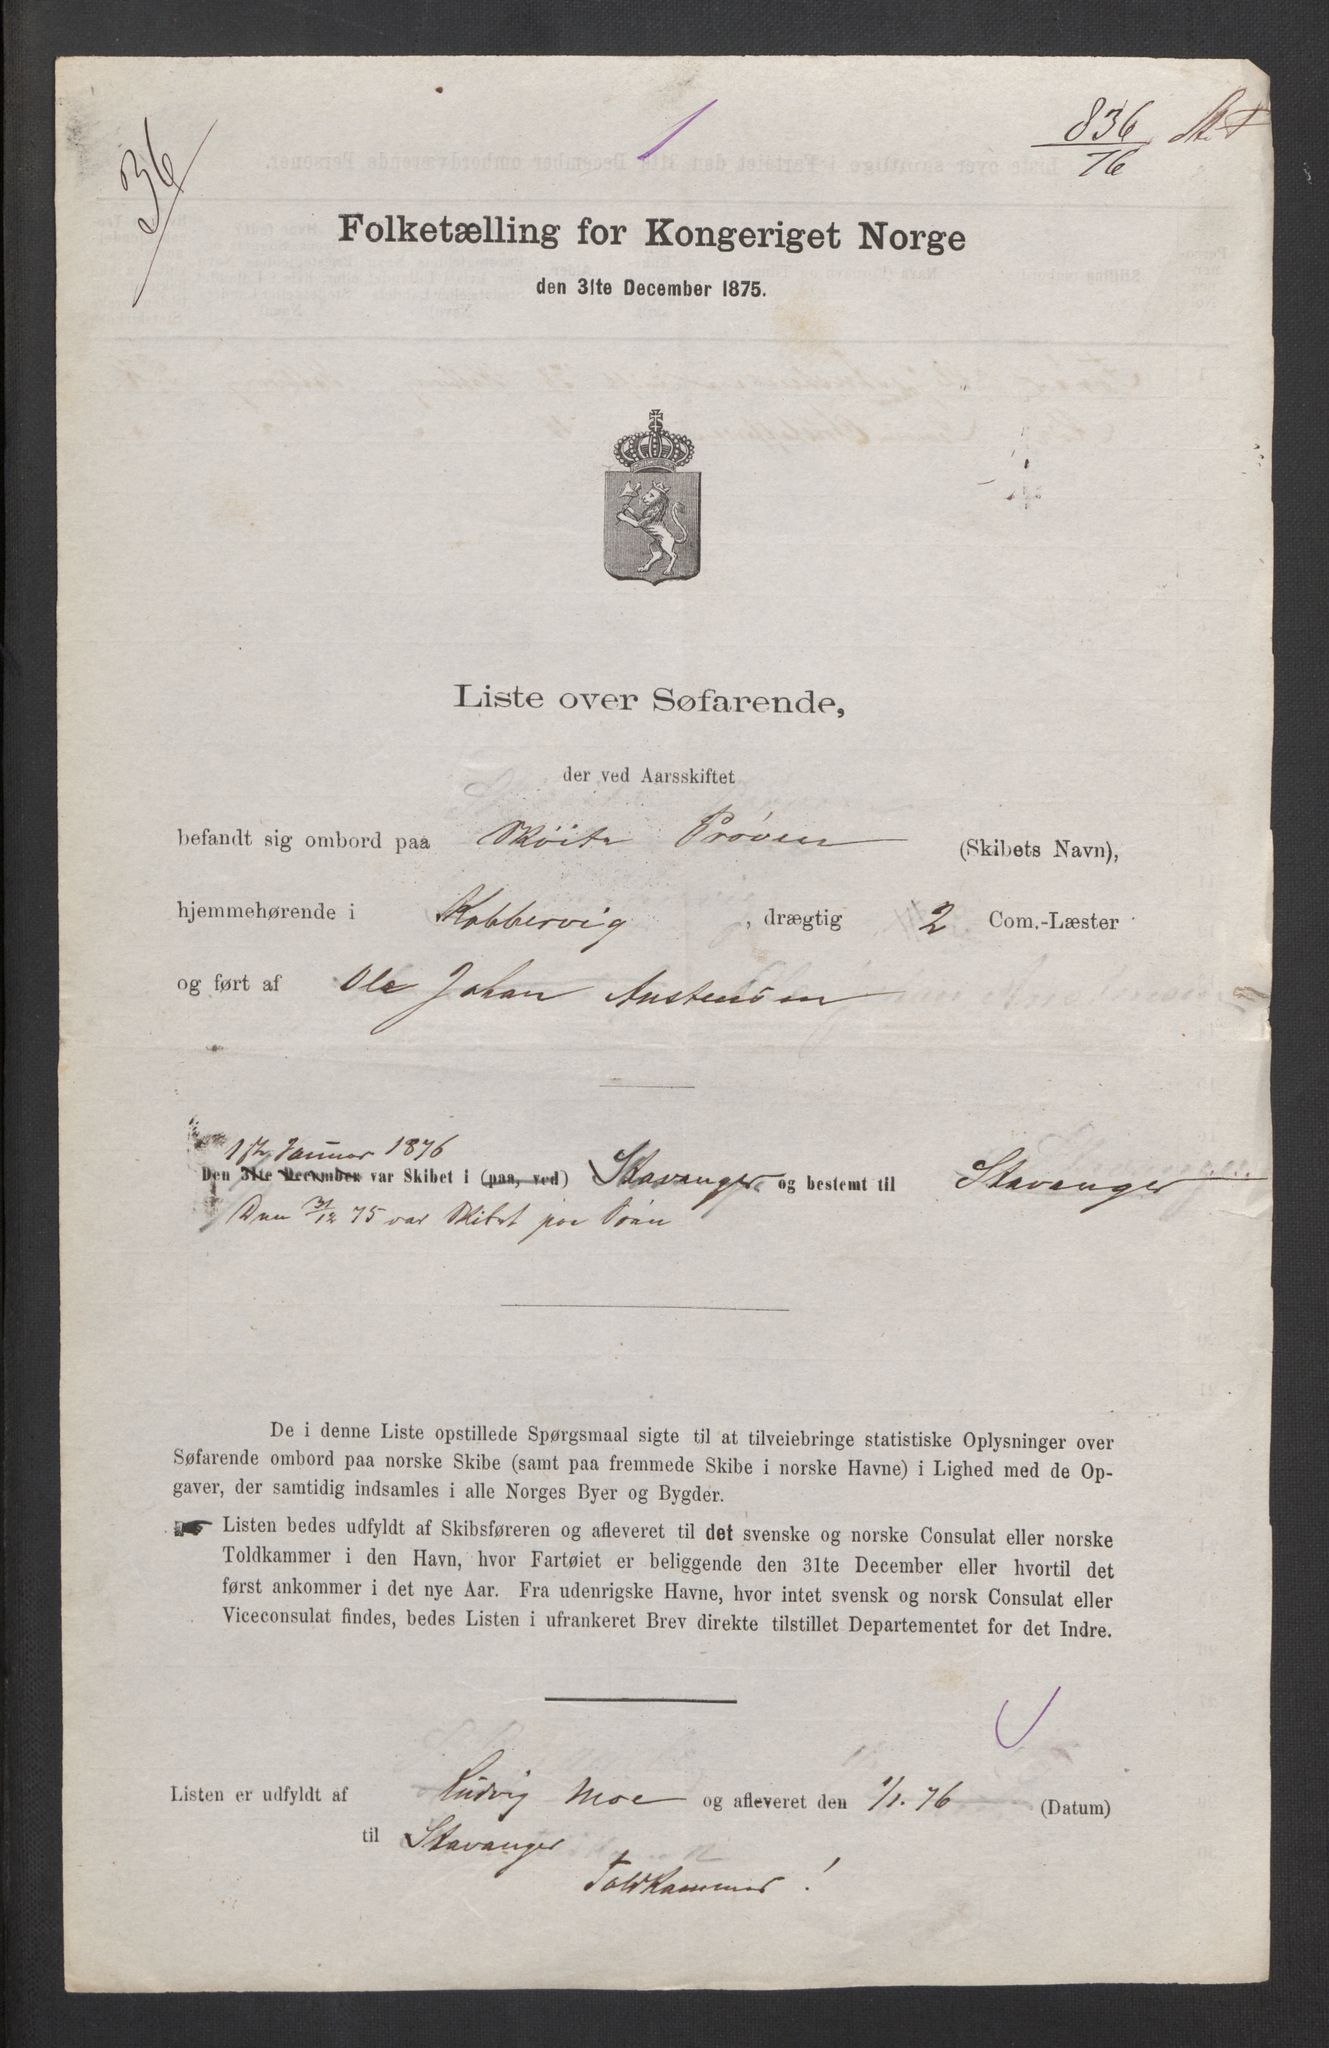 36
1
836 / 76
Folketælling for Kongeriget Norge
den 31te December 1875.
Liste over Søfarende,
der ved Aarsskiftet
befandt sig ombord paa Skøite Prøven (Skibets Navn),
hjemmehørende i Kobbervig, drægtig 2 Com.-Læster
og ført af Ole Johan Austensen
1ste Januar 1876
Den 31te December var Skibet i (paa, ved) Stavanger og bestemt til Stavanger
Den 31/12 75 var Skibet paa Søen
De i denne Liste opstillede Spørgsmaal sigte til at tilveiebringe statistiske Oplysninger over
Søfarende ombord paa norske Skibe (samt paa fremmede Skibe i norske Havne) i Lighed med de Op-
gaver, der samtidig indsamles i alle Norges Byer og Bygder.
Listen bedes udfyldt af Skibsføreren og afleveret til det svenske og norske Consulat eller norske
Toldkammer i den Havn, hvor Fartøiet er beliggende den 31te December eller hvortil det
først ankommer i det nye Aar. Fra udenrigske Havne, hvor intet svensk og norsk Consulat eller
Viceconsulat findes, bedes Listen i ufrankeret Brev direkte tilstillet Departementet for det Indre.
Listen er udfyldt af Ludvig Moe og afleveret den 1/1. 76 (Datum)
til Stavanger
Toldkammer!